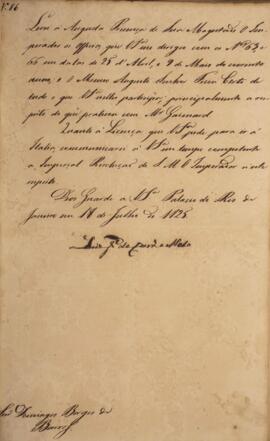 N. 86
Levei á Augusta Presença de Sua Magestade O Im-
perador os Officios, que VSª me dirigio com os Nos 65, e
66 em datas de 25 d'Abril, e 9 de Maio do corrente
anno, e O Mesmo Augusto Senhor Ficou Certo de
tudo o que VSª nelles participa, principalmente a res-
peito do que praticou com Mr Gameard.
Quanto á Licença, que VSª pede, para ir á
Italia, communicarei a VSª em tempo competente
a Imperial Resolução de S. M. O Imperador a este
respeito.
Deos Guarde a VSª. Palacio do Rio de
Janeiro em 18 de Julho de 1825
Luiz José de Carvº e Mello
Snr Domingos Borges de
Barros